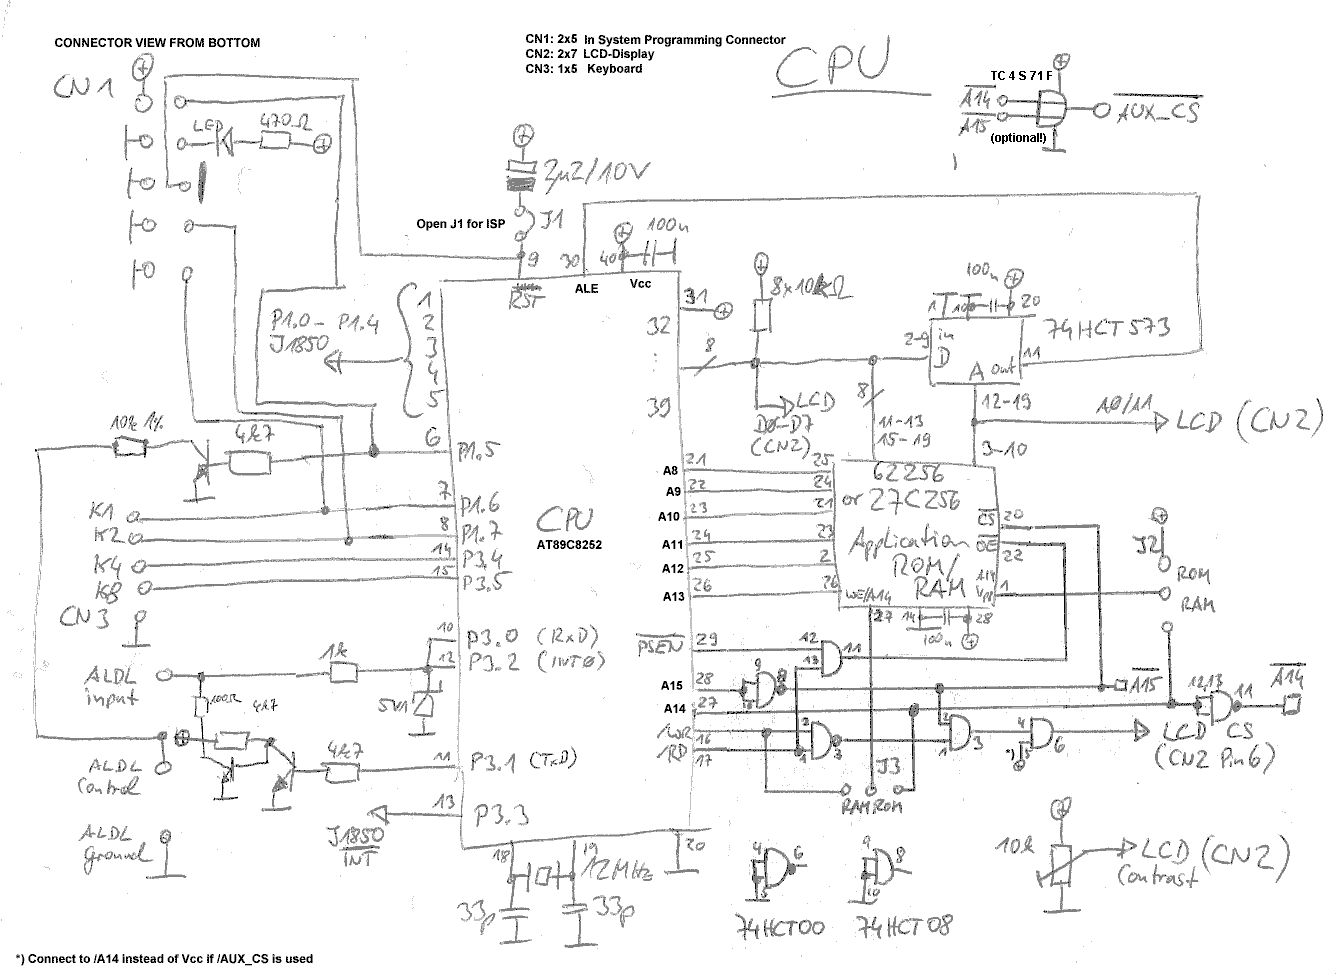 CONNECTOR VIEW FROM BOTTOM
CN1: 2x5 In System Programming Connector
CN2: 2x7 LCD-Display
CN3: 1x5 Keyboard
CPU
TC 4 S 71 F
A14
A15
AUX_CS
(optional!)
CN1
LED
470Ω
2µ2/10V
Open J1 for ISP
J1
100n
9
30
40
RST
ALE
Vcc
31
8x10kΩ
100n
1
10
20
74HCT573
P1.0 - P1.4
J1850
1
2
3
4
5
32
39
8
2-9
in
D
A out
11
LCD
D0-D7
(CN2)
8
11-13
15-19
12-19
A0/A1
LCD (CN2)
3-10
10k 1%
4k7
6
P1.5
A8
21
25
A9
22
24
A10
23
21
A11
24
23
A12
25
2
A13
26
26
62256
or 27C256
Application
ROM/
RAM
CS
20
OE
22
A14
Vpp
1
WE/A14
27
14
28
100n
J2
ROM
RAM
K1
7
P1.6
K2
8
P1.7
K4
14
P3.4
K8
15
P3.5
CN3
CPU
AT89C8252
10
P3.0 (RxD)
12
P3.2 (INT0)
ALDL
input
1k
5V1
100Ω
4k7
4k7
11
P3.1 (TxD)
ALDL
Control
13
P3.3
J1850
INT
ALDL
ground
PSEN
29
12
13
11
A15
28
9
10
8
A15
A14
27
12,13
11
A14
/WR
16
/RD
17
2
1
3
2
1
3
4
5
6
*)
LCD CS
(CN2 Pin6)
J3
RAM ROM
18
19
20
12MHz
33p
33p
4
5
6
74HCT00
9
10
8
74HCT08
10k
LCD (CN2)
Contrast
*) Connect to /A14 instead of Vcc if /AUX_CS is used